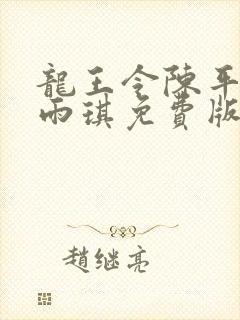 龍王令陳平
雨琪免費版
趙继亮